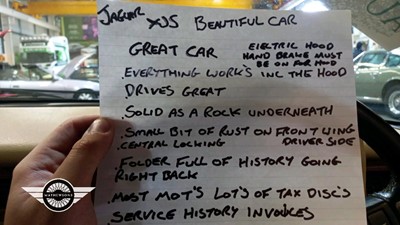 JAGUAR XJS BEAUTIFUL CAR
GREAT CAR
ELECTRIC HOOD
HAND BRAKE MUST
BE ON FOR HOOD
.EVERYTHING WORKS INC THE HOOD
DRIVES GREAT
.SOLID AS A ROCK UNDERNEATH
.SMALL BIT OF RUST ON FRONT WING
DRIVER SIDE
.CENTRAL LOCKING
.FOLDER FULL OF HISTORY GOING
RIGHT BACK
.MOST MOT'S LOT'S OF TAX DISC'S
SERVICE HISTORY INVOICES